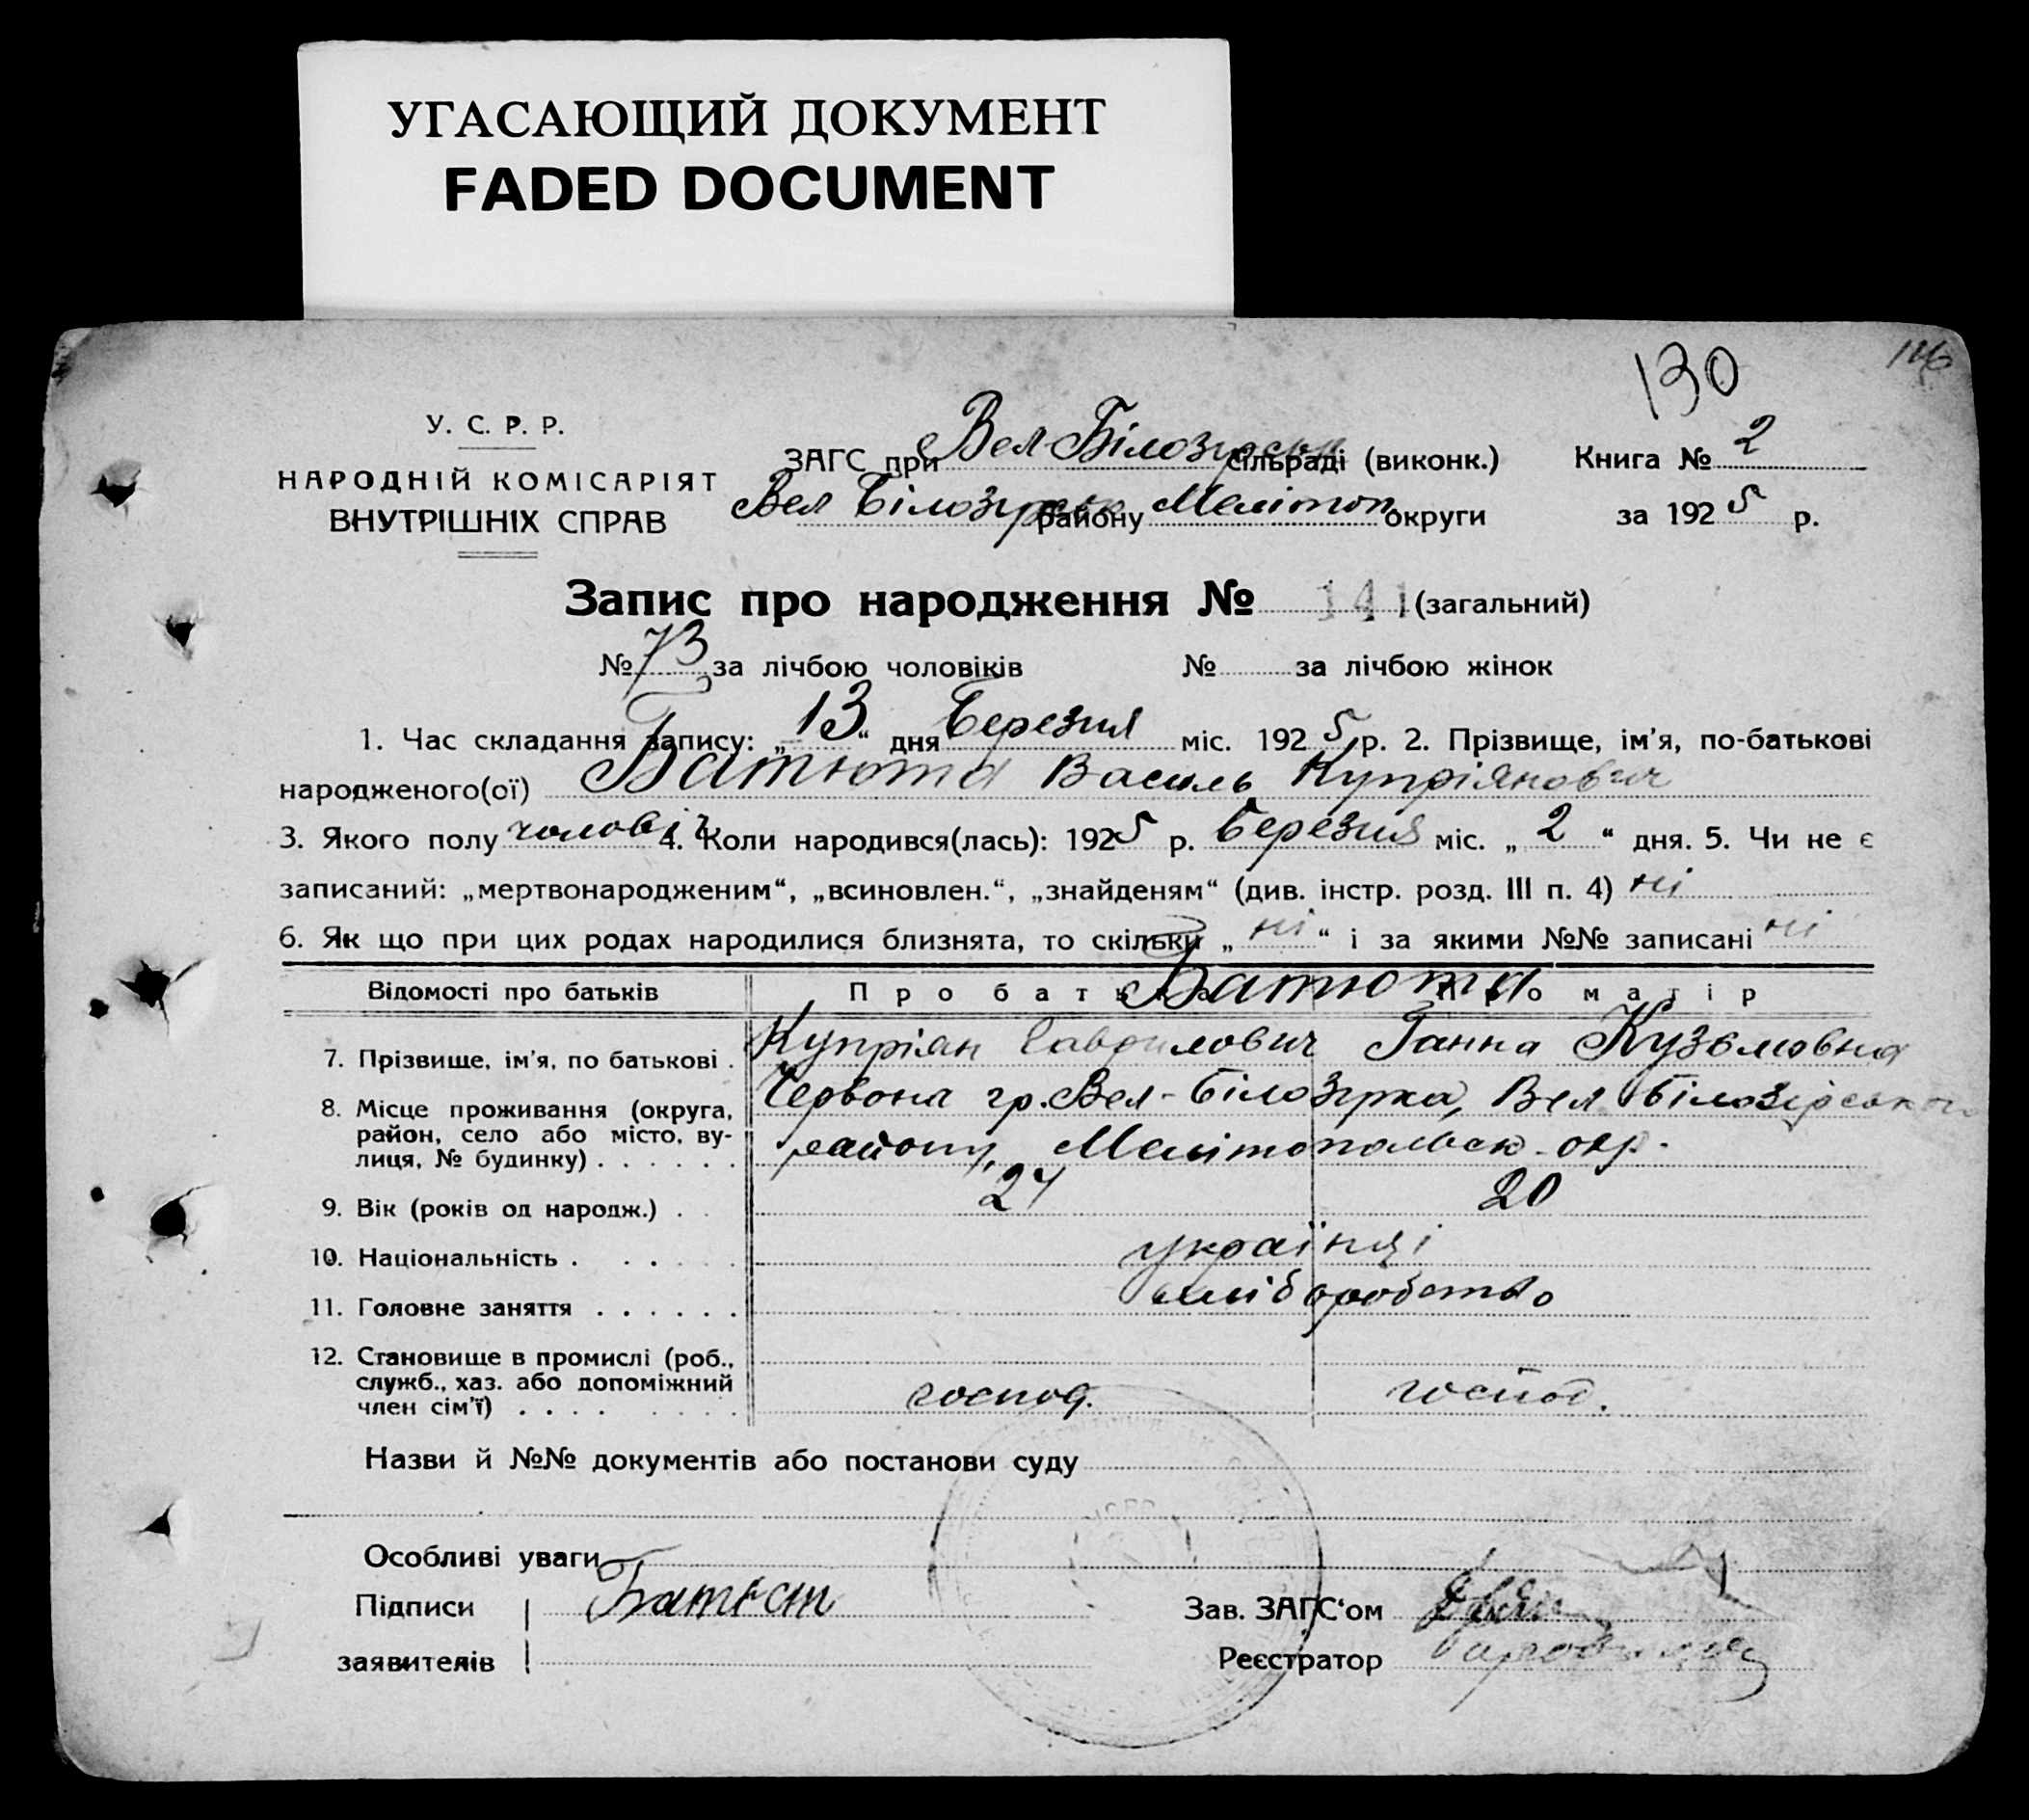 УГАСАЮЩИЙ ДОКУМЕНТ
FADED DOCUMENT
130
У. С. Р. Р.
НАРОДНІЙ КОМІСАРІЯТ
ВНУТРІШНІХ СПРАВ
ЗАГС при Вел Білозірськ сільраді (виконк.) Книга № 2
Вел Білозірськ району Мелітоп округи за 1925 р.
Запис про народження № 141 (загальний)
№ 73 за лічбою чоловіків № за лічбою жінок
1. Час складання запису: „13“ дня Березня міс. 1925 р. 2. Прізвище, ім'я, по-батькові
народженого(ої) Батюта Василь Купріянович
3. Якого полу чоловіч 4. Коли народився(лась): 1925 р. Березня міс. „2“ дня. 5. Чи не є
записаний: „мертвонародженим“, „всиновлен.“, „знайденям“ (див. інстр. розд. III п. 4) ні
6. Як що при цих родах народилися близнята, то скільки „ні“ і за якими №№ записані ні
Батюта
Відомості про батьків Про батька Про матір
7. Прізвище, ім'я, по батькові . Купріян Гаврилович Ганна Кузьмовна
8. Місце проживання (округа, Червона гр. Вел-Білозірка, Вел Білозірського
район, село або місто, ву-
лиця, № будинку) . . . . . . району, Мелітопольск. окр.
9. Вік (років од народж.) . . 24 20
10. Національність . . . . . українці
11. Головне заняття . . . . . . хліборобство
12. Становище в промислі (роб.,
служб., хаз. або допоміжний
член сім'ї) . . . . . . . . господ. господ.
Назви й №№ документів або постанови суду
Особливі уваги
Підписи Зав. ЗАГС‘ом
заявителів Реєстратор